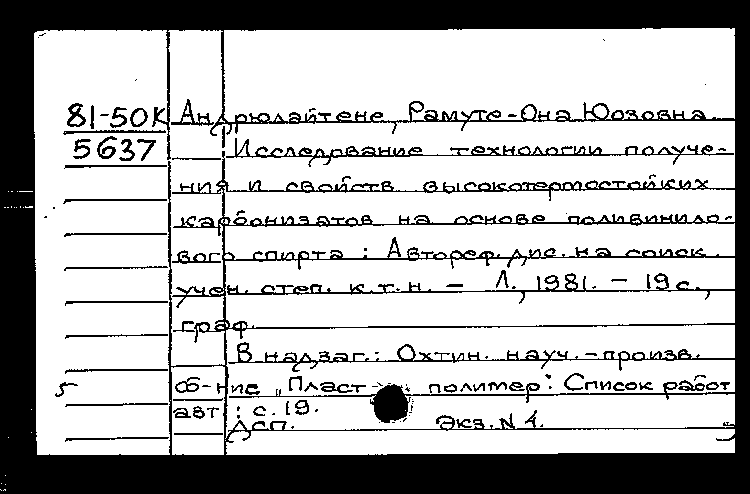 81-50К Андрюлайтене, Рамуте-Она Юозовна.
5637 Исследование технологии получе-
ния и свойств высокотермостойких
карбонизатов на основе поливинило-
вого спирта : Автореф. дис. на соиск.
учен. степ. к.т.н. – Л., 1981. – 19 с.,
граф.
В надзаг.: Охтин. науч.-произв.
5 об-ние „Пласт полимер: Список работ
авт.: с. 19.
Дсп. Экз. N 4.